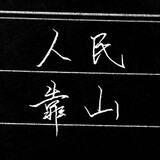 人民
靠山